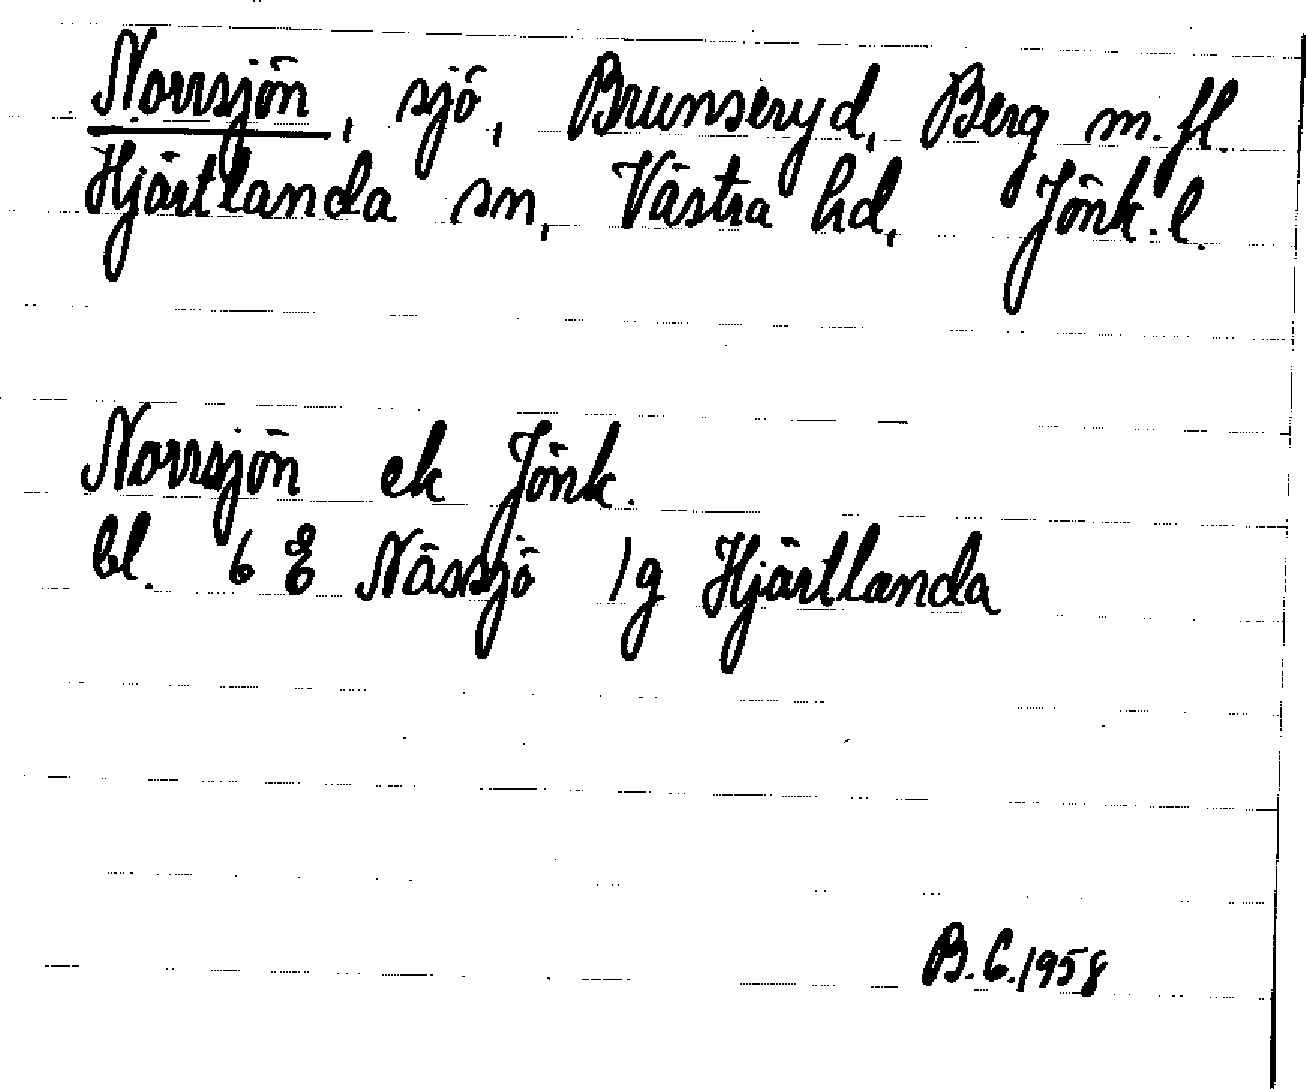 Norrsjön, sjö, Brunseryd, Berg m.fl.
Hjärtlanda sn, Västra hd, Jönk.l.
Norrsjön ek Jönk.
bl. 6 E Nässjö 1g Hjärtlanda
B.C.1958